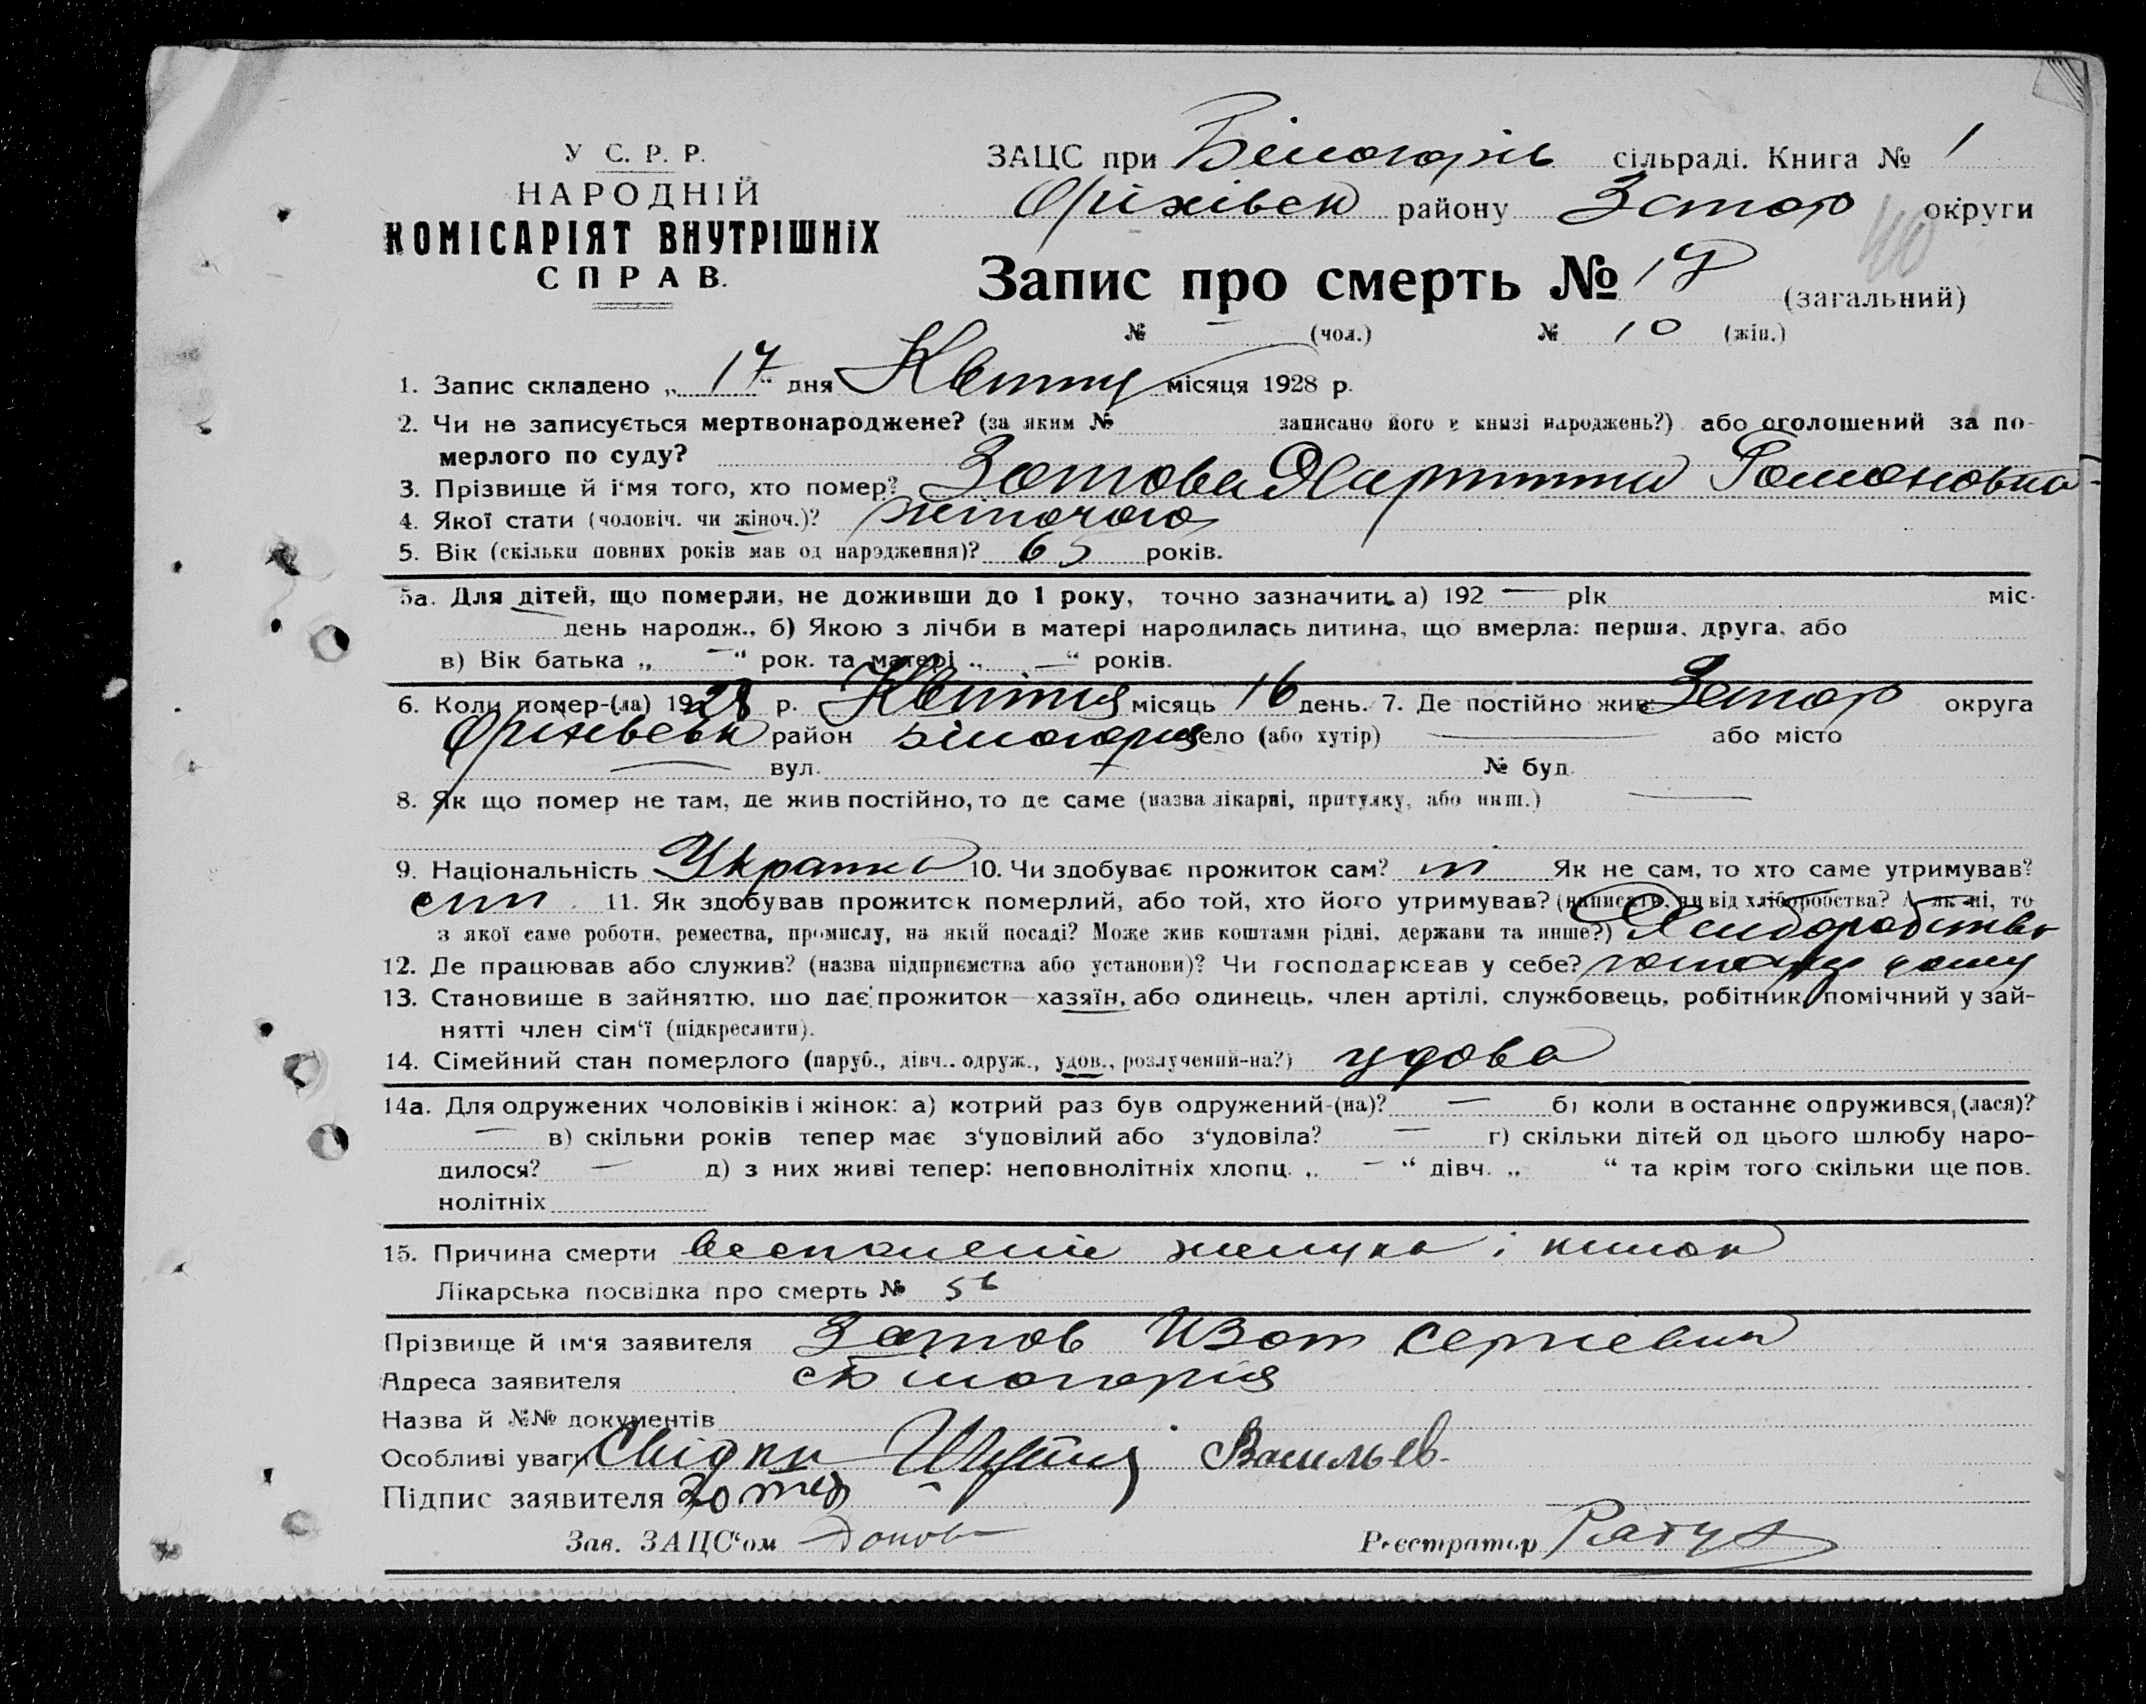 У С. Р. Р.
НАРОДНІЙ
КОМІСАРІЯТ ВНУТРІШНІХ
СПРАВ.
ЗАЦС при Білогорів сільраді. Книга № 1
Оріхівск району Запор округи
40
Запис про смерть № 19 (загальний)
№ — (чол.) № 10 (жін.)
1. Запис складено „ 17 “ дня Квітня місяця 1928 р.
2. Чи не записується мертвонароджене? (за яким № записано його в книзі народжень?) або оголошений за по-
мерлого по суду?
3. Прізвище й і'мя того, хто помер? Зотова Харитина Романовна
4. Якої стати (чоловіч. чи жіноч.)? жіночого
5. Вік (скільки повних років мав од народження)? 65 років.
5а. Для дітей, що померли, не доживши до 1 року, точно зазначити а) 192 — рік міс.
день народж., б) Якою з лічби в матері народилась дитина, що вмерла: перша, друга, або
в) Вік батька „ — “ рок. та матері „ — “ років.
6. Коли помер-(ла) 1928 р. Квітня місяць 16 день. 7. Де постійно жив Запор округа
Оріхівськ район Білогорця село (або хутір) — або місто
— вул. № буд.
8. Як що помер не там, де жив постійно, то де саме (назва лікарні, притулку, або инш.) —
9. Національність Украинка 10. Чи здобуває прожиток сам? ні Як не сам, то хто саме утримував?
син 11. Як здобував прожиток померлий, або той, хто його утримував? (написати, чи від хліборобства? А як ні, то
з якої саме роботи, ремества, промислу, на якій посаді? Може жив коштами рідні, держави та инше?) Хліборобство
12. Де працював або служив? (назва підприємства або установи)? Чи господарював у себе?
13. Становище в зайняттю, що дає прожиток—хазяїн, або одинець, член артілі, службовець, робітник, помічний у зай-
нятті член сім'ї (підкреслити).
14. Сімейний стан померлого (паруб., дівч., одруж., удов., розлучений-на?) удова
14а. Для одружених чоловіків і жінок: а) котрий раз був одружений-(на)? — б) коли в останнє одружився,(лася)?
— в) скільки років тепер має з'удовілий або з'удовіла? — г) скільки дітей од цього шлюбу наро-
дилося? — д) з них живі тепер: неповнолітніх хлопц. „ — “ дівч. „ “ та крім того скільки ще пов.
нолітніх
15. Причина смерти воспаление желудка і кишок
Лікарська посвідка про смерть № 56
Прізвище й ім'я заявителя Зотов Изот Сергіевич
Адреса заявителя с Білогорця
Назва й №№ документів
Особливі уваги Свідки Васильев
Підпис заявителя Зотов
Зав. ЗАЦС'ом Реєстратор